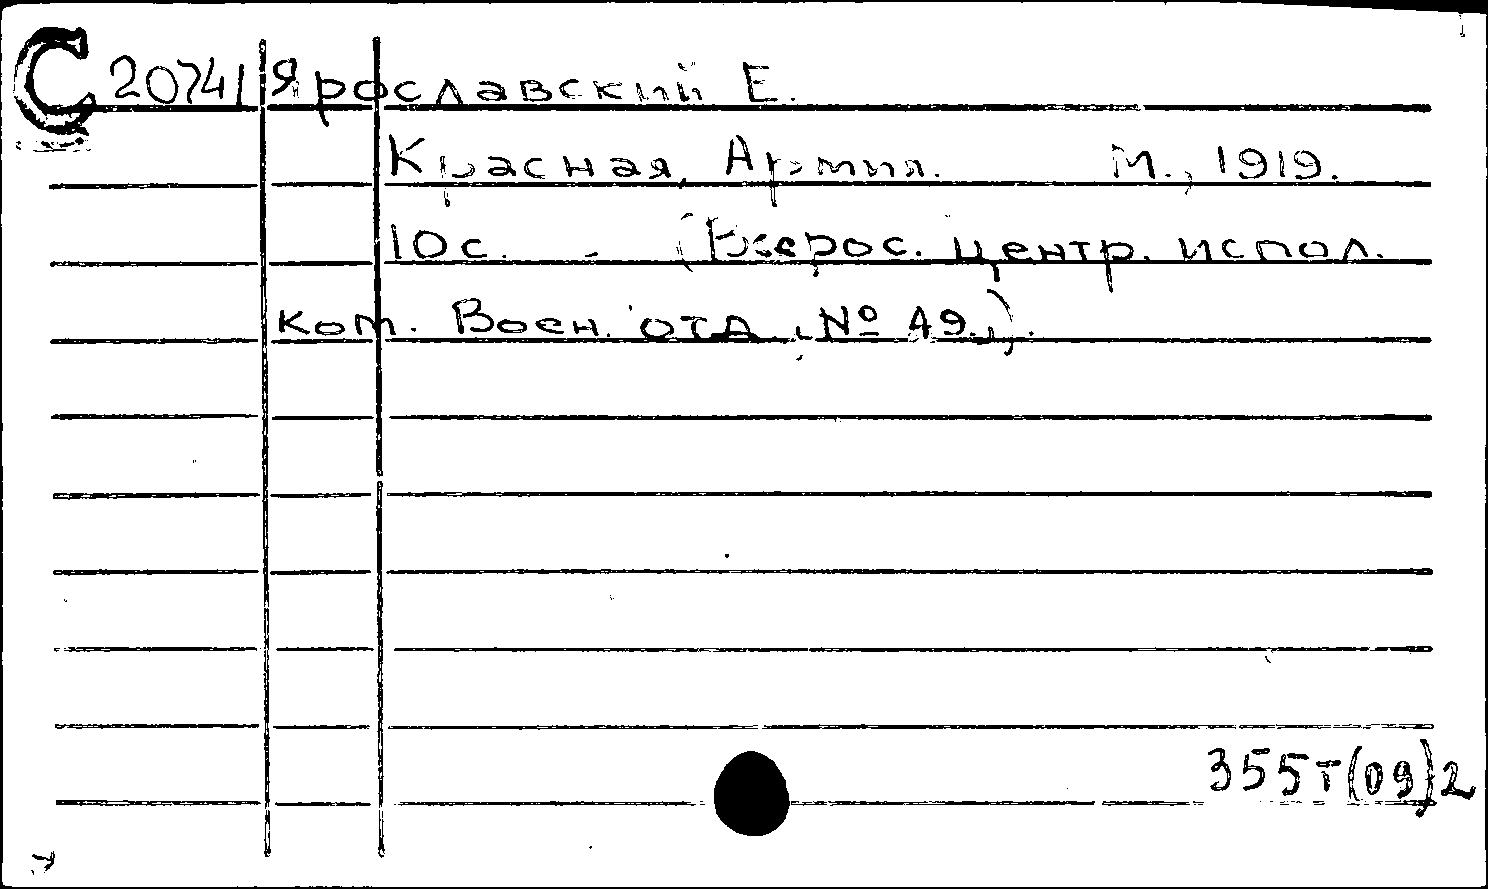 С 20741 Ярославский Е.
Красная Армия. М., 1919.
10с. - (Всерос. центр. испол.
ком. Воен. отд., № 49.).
355т(09)2